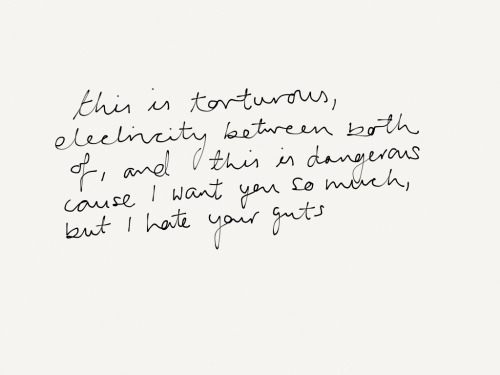 this is torturous,
electricity between both
of, and this is dangerous
cause I want you so much,
but I hate your guts